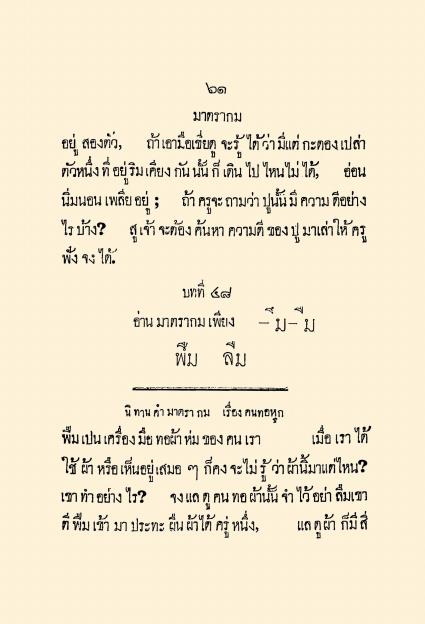 ๖๑
มาตรากม
อยู่ สองตัว, ถ้าเอามือเขี่ยดู จะรู้ ได้ว่ามีแต่ กะดองเปล่า
ตัวหนึ่ง ที่ อยู่ริม เคียง กัน นั้น ก็ เดิน ไป ไหนไม่ ได้, อ่อน
นิ่มนอน เพลีย อยู่ ; ถ้า ครูจะ ถามว่า ปูนั้นมี ความ ดีอย่าง
ไร บ้าง? สู เจ้า จะต้อง ค้นหา ความดี ของ ปู มาเล่าให้ ครู
ฟัง จง ได้.
บทที่ ๔๘
อ่าน มาตรากม เพียง –ึม–ืม
พึม ลืม
นิ ทาน คำ มาตรา กม เรื่อง คนทอหูก
ฟืม เปน เครื่อง มือ ทอผ้า ห่ม ของ คน เรา เมื่อ เรา ได้
ใช้ ผ้า หรือ เห็นอยู่ เสมอ ๆ ก็คง จะไม่ รู้ ว่า ผ้านี้มาแต่ไหน?
เขา ทำ อย่าง ไร? จง แล ดู คน ทอ ผ้านั้น จำ ไว้ อย่า ลืมเขา
ตี ฟืม เข้า มา ประทะ ผืน ผ้าได้ ครู่ หนึ่ง, แล ดูผ้า ก็มี สี